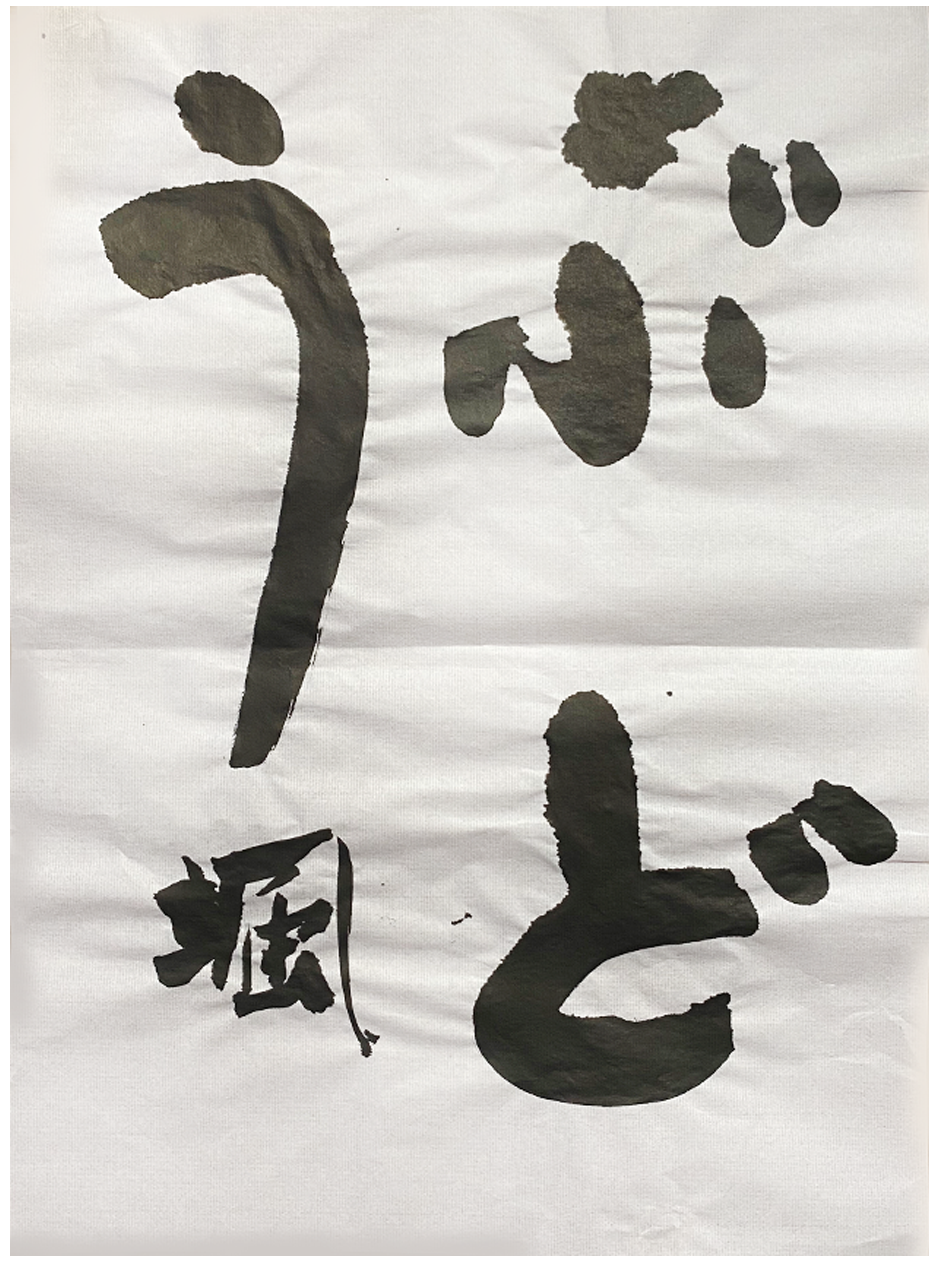 ぶど
う
颯